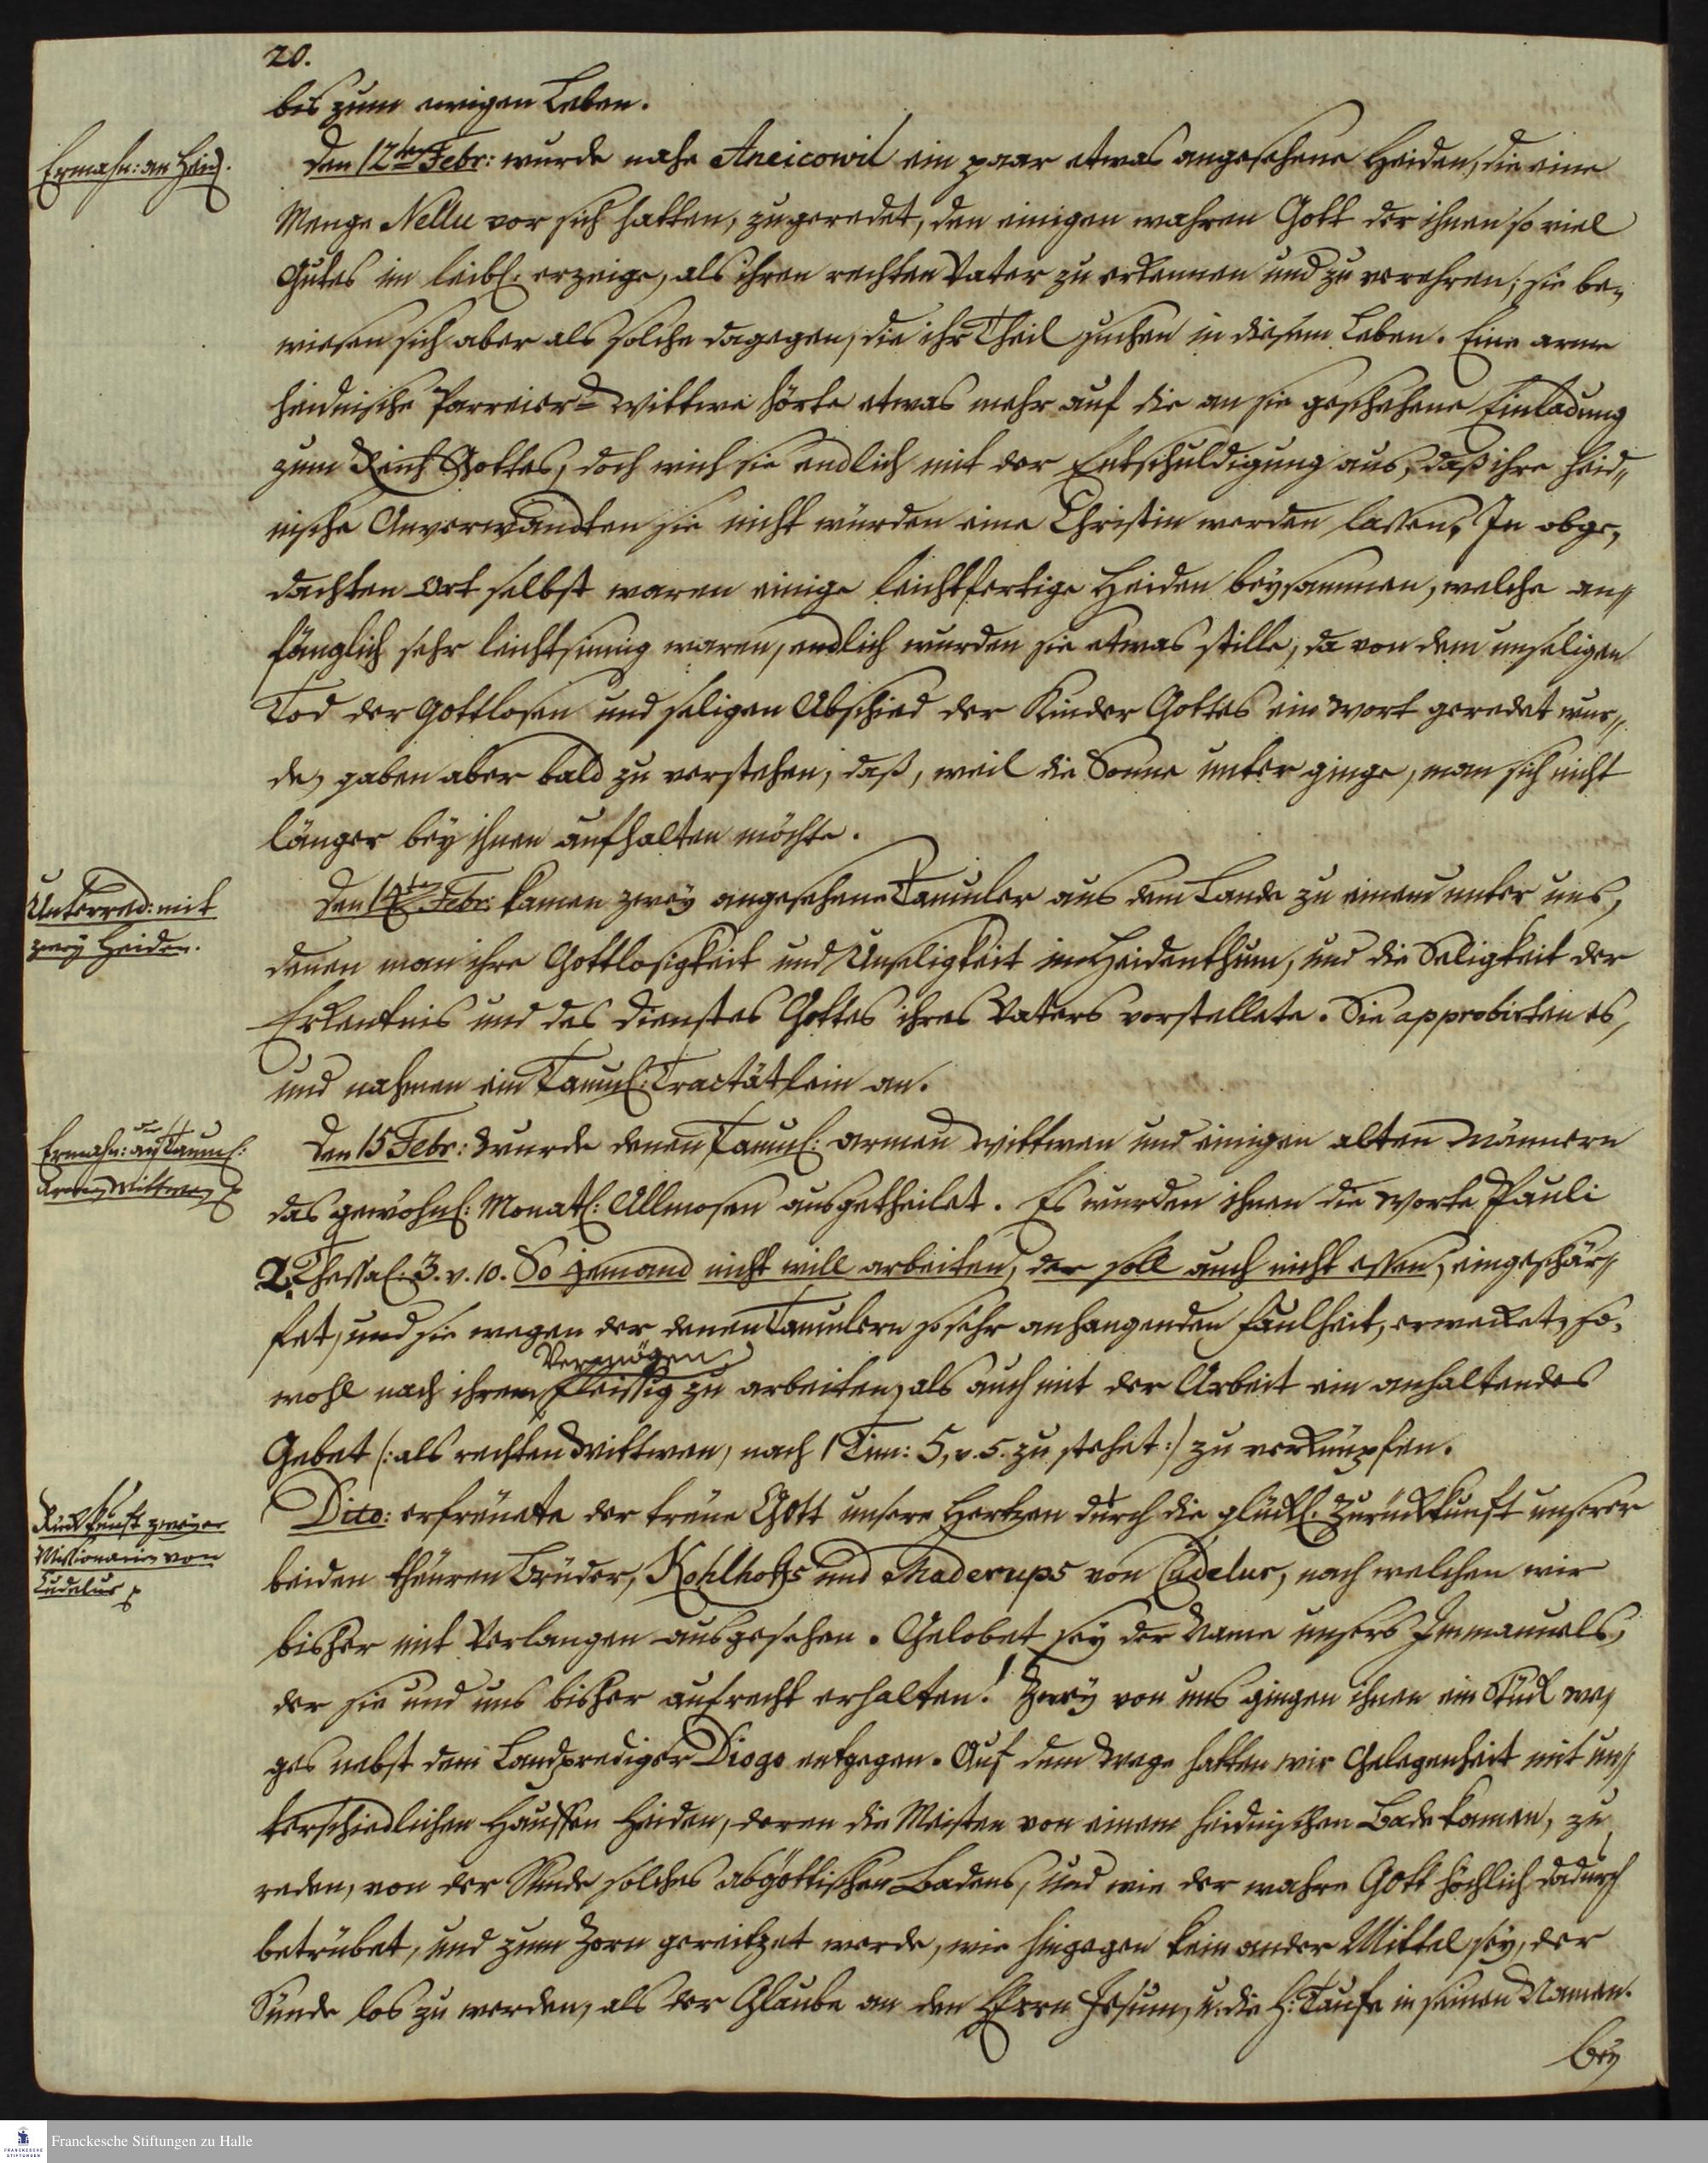 20.
bis zum ewigen Leben.
Ermahn: an Heid.
Den 12ten Febr: wurde nahe Aneicowil ein paar etwas angesehene Heiden, die eine
Menge Nellu vor sich hatten, zugeredet, den einigen wahren Gott der ihnen so viel
Gutes im leibl. erzeige, als ihren rechten Vater zu erkennen und zu verehren; sie be-
wiesen sich aber als solche dagegen, die ihr Theil suchen in diesem Leben. Eine arme
heidnische Parreier-Wittwe hörte etwas mehr auf die an sie geschehene Einladung
zum Reich Gottes, doch wich sie endlich mit der Entschuldigung aus, daß ihre heid-
nische Anverwandten sie nicht würden eine Christin werden lassen. In obge-
dachten Ort selbst waren einige leichtfertige Heiden beysammen, welche an-
fänglich sehr leichtsinnig waren, endlich wurden sie etwas stille, da von dem unseligen
Tod der Gottlosen und seligen Abschied der Kinder Gottes ein Wort geredet wur-
de, gaben aber bald zu verstehen, daß, weil die Sonne unter ginge, man sich nicht
länger bey ihnen aufhalten möchte.
Unterred: mit
zwey Heiden.
Den 14ten Febr: kamen zwey angesehene Tamuler aus dem Lande zu einem unter uns,
denen man ihre Gottlosigkeit und Unseligkeit im Heidenthum, und die Seligkeit der
Erkentnis und des Dienstes Gottes ihres Vaters vorstellete. Sie approbirten es,
und nahmen ein Tamul: Tractätlein an.
Ermahn: an Tamul:
armen Wittwen
Den 15 Febr: wurde denen Tamul: armen Wittwen und einigen alten Männern
das gewöhnl: Monatl: Allmosen ausgetheilet. Es wurden ihnen die Worte Pauli
2. Thessal: 3. v. 10. So jemand nicht will arbeiten, der soll auch nicht essen, eingeschär-
fet, und sie wegen der denen Tamulern so sehr anhangenden Faulheit, erwecket, so-
wohl nach ihrem Vermögen fleissig zu arbeiten, als auch mit der Arbeit ein anhaltendes
Gebet (: als rechten Wittwen, nach 1 Tim: 5, v. 5. zu stehet :) zu verknüpfen.
Rückkunft zweyer
Missionarien von
Cudelur
Dito: erfreuete der treue Gott unsere Hertzen durch die glückl. Zurückkunft unserer
beiden theuren Brüder, Kohlhoffs und Maderups von Cudelur, nach welchen wir
bisher mit Verlangen ausgesehen. Gelobet sey der Name unsers Immanuels,
der sie und uns bisher aufrecht erhalten! Zwey von uns gingen ihnen ein Stück we-
ges nebst dem Landprediger Diogo entgegen. Auf dem Wege hatten wir Gelegenheit mit un-
terschiedlichen Hauffen Heiden, deren die Meisten von einem heidnischen Bade kamen, zu
reden, von der Sünde solches abgöttischen Badens, und wie der wahre Gott höchlich dadurch
betrübet, und zum Zorn gereitzet werde, wie hingegen kein ander Mittel sey, der
Sünde los zu werden, als der Glaube an den HErrn Jesum, u. die H: Taufe in seinen Namen.
Bey
Franckesche Stiftungen zu Halle